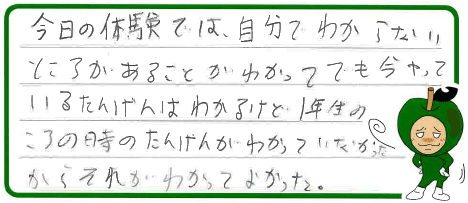 今日の体験では、自分でわからない
ところがあることがわかってでも今やって
いるたんげんはわかるけど、1年生の
ころの時のたんげんがわかっていなかった
からそれがわかってよかった。